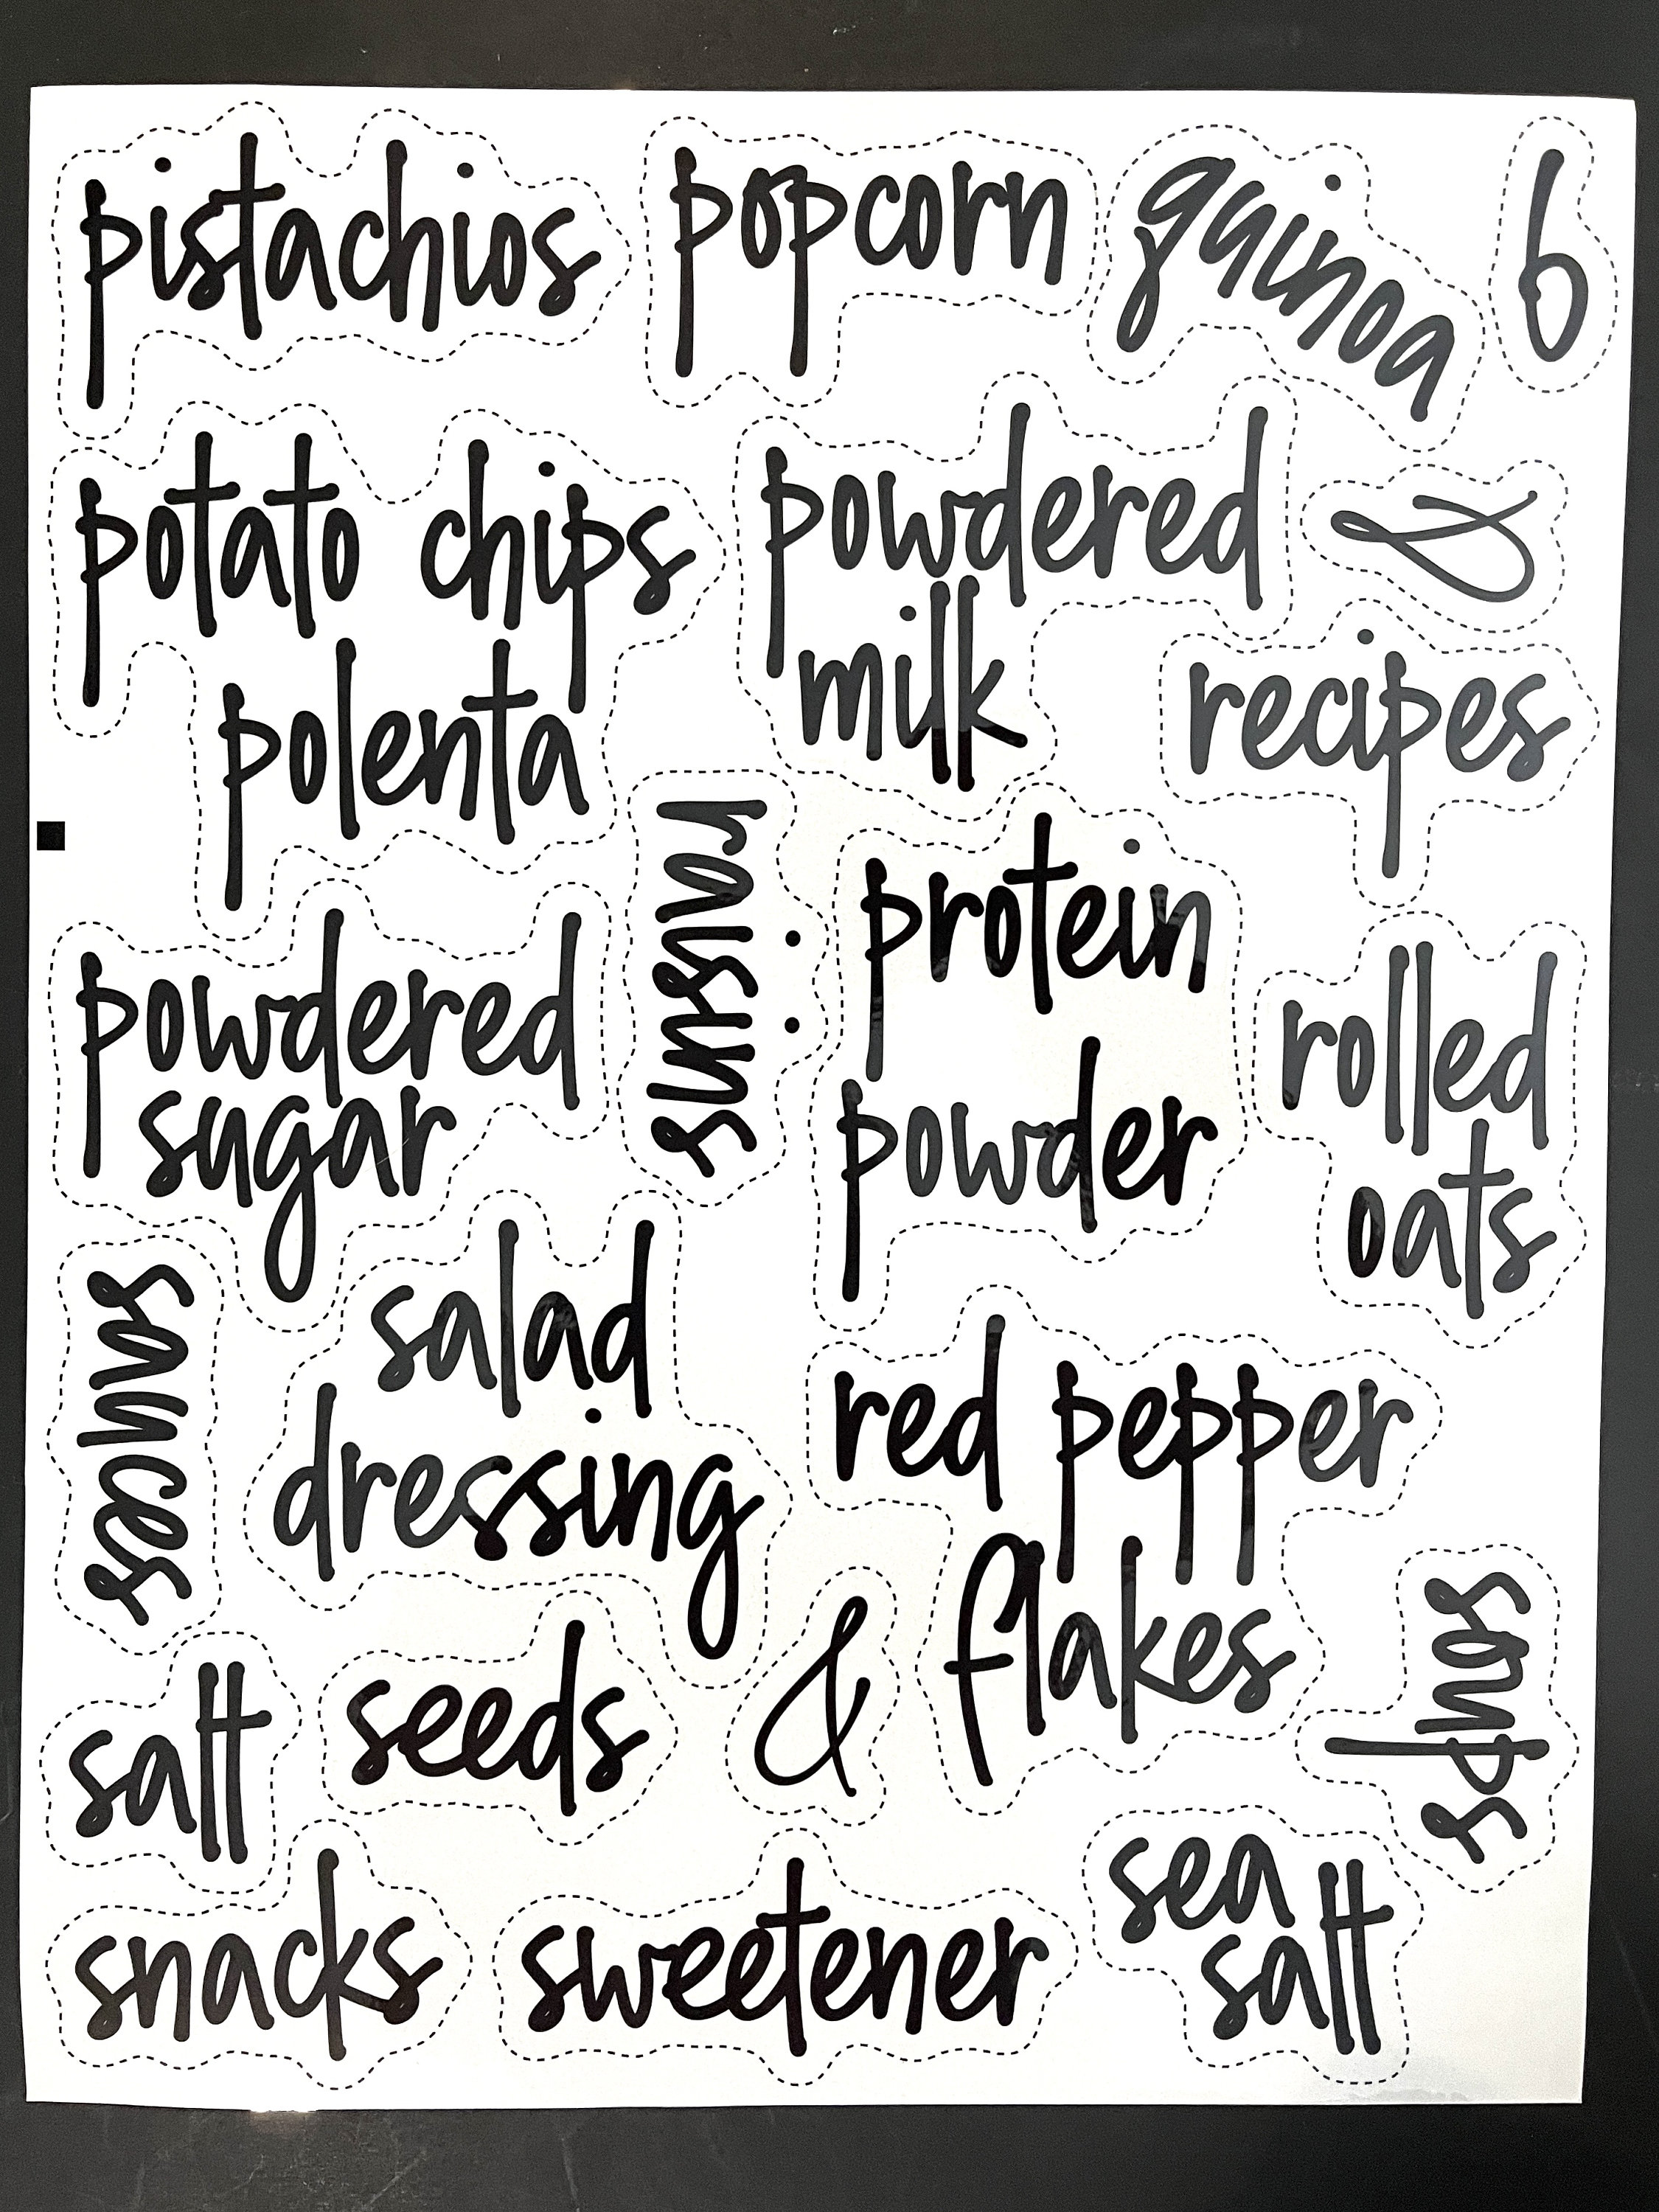 pistachios
popcorn
quinoa
6
potato chips
powdered
milk
&
polenta
recipes
raisins
protein
powder
powdered
sugar
rolled
oats
sauces
salad
dressing
red pepper
flakes
soups
salt
seeds
&
sea
salt
snacks
sweetener